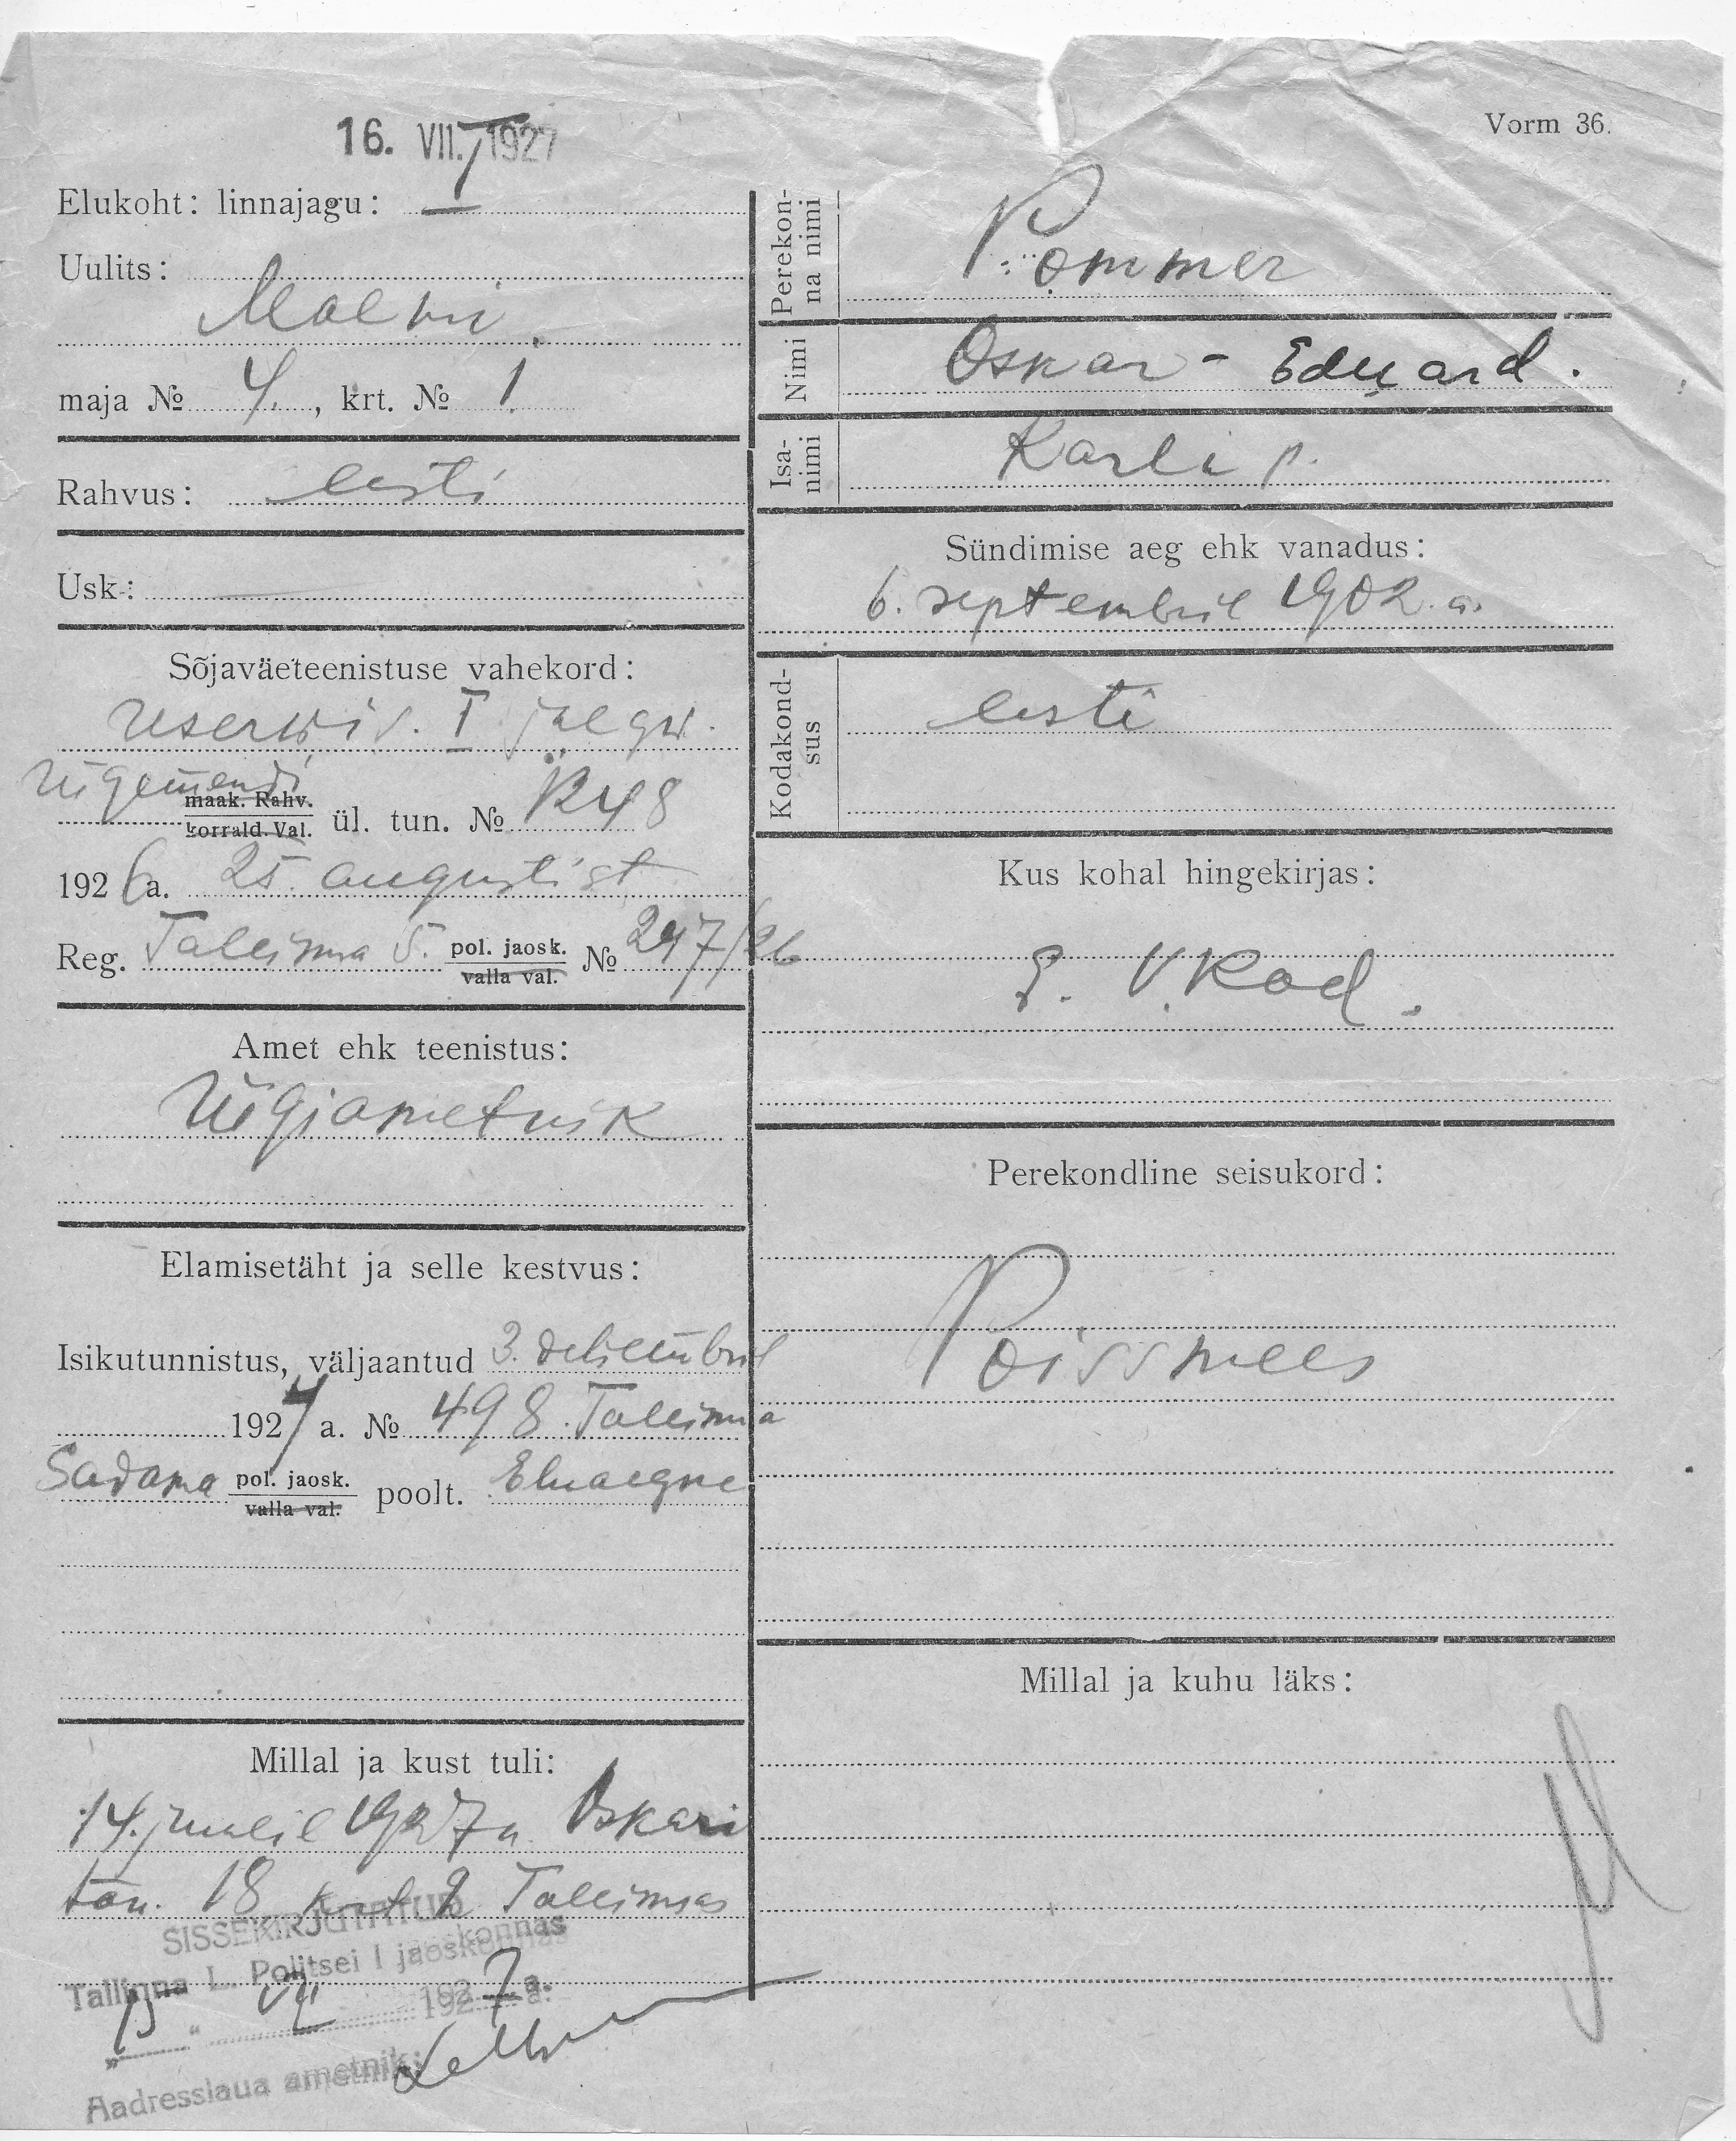 16. VII. 1927
Vorm 36.
Elukoht: linnajagu: I
Uulits:
maja № 4., krt. № 1.
Rahvus: eesti
Usk:
Sõjaväeteenistuse vahekord:
I
maak. Rahv.
korrald. Val. ül. tun. №
1926 a. 25. augustist
Reg. Tallinna 5. pol. jaosk. № 247/26
valla val.
Amet ehk teenistus:
Riigiametnik
Elamisetäht ja selle kestvus:
Isikutunnistus, väljaantud 3. detsembril
1924 a. № 498. Tallinna
Sadama pol. jaosk. poolt. Eluaegne
valla val.
Millal ja kust tuli:
14. juulil 1927 a. Oskari
tän. 18 krt 2 Tallinnas
SISSEKIRJUTATUD
Tallinna L. Politsei I jaoskonnas
15 VII 1927 a.
Aadresslaua ametnik:
Perekon-
na nimi
Pommer
Nimi
Oskar - Eduard.
Isa-
nimi
Karli p.
Sündimise aeg ehk vanadus:
6. septembril 1902. a.
Kodakond-
sus
eesti
Kus kohal hingekirjas:
E. V. Kod.
Perekondline seisukord:
Poissmees
Millal ja kuhu läks: